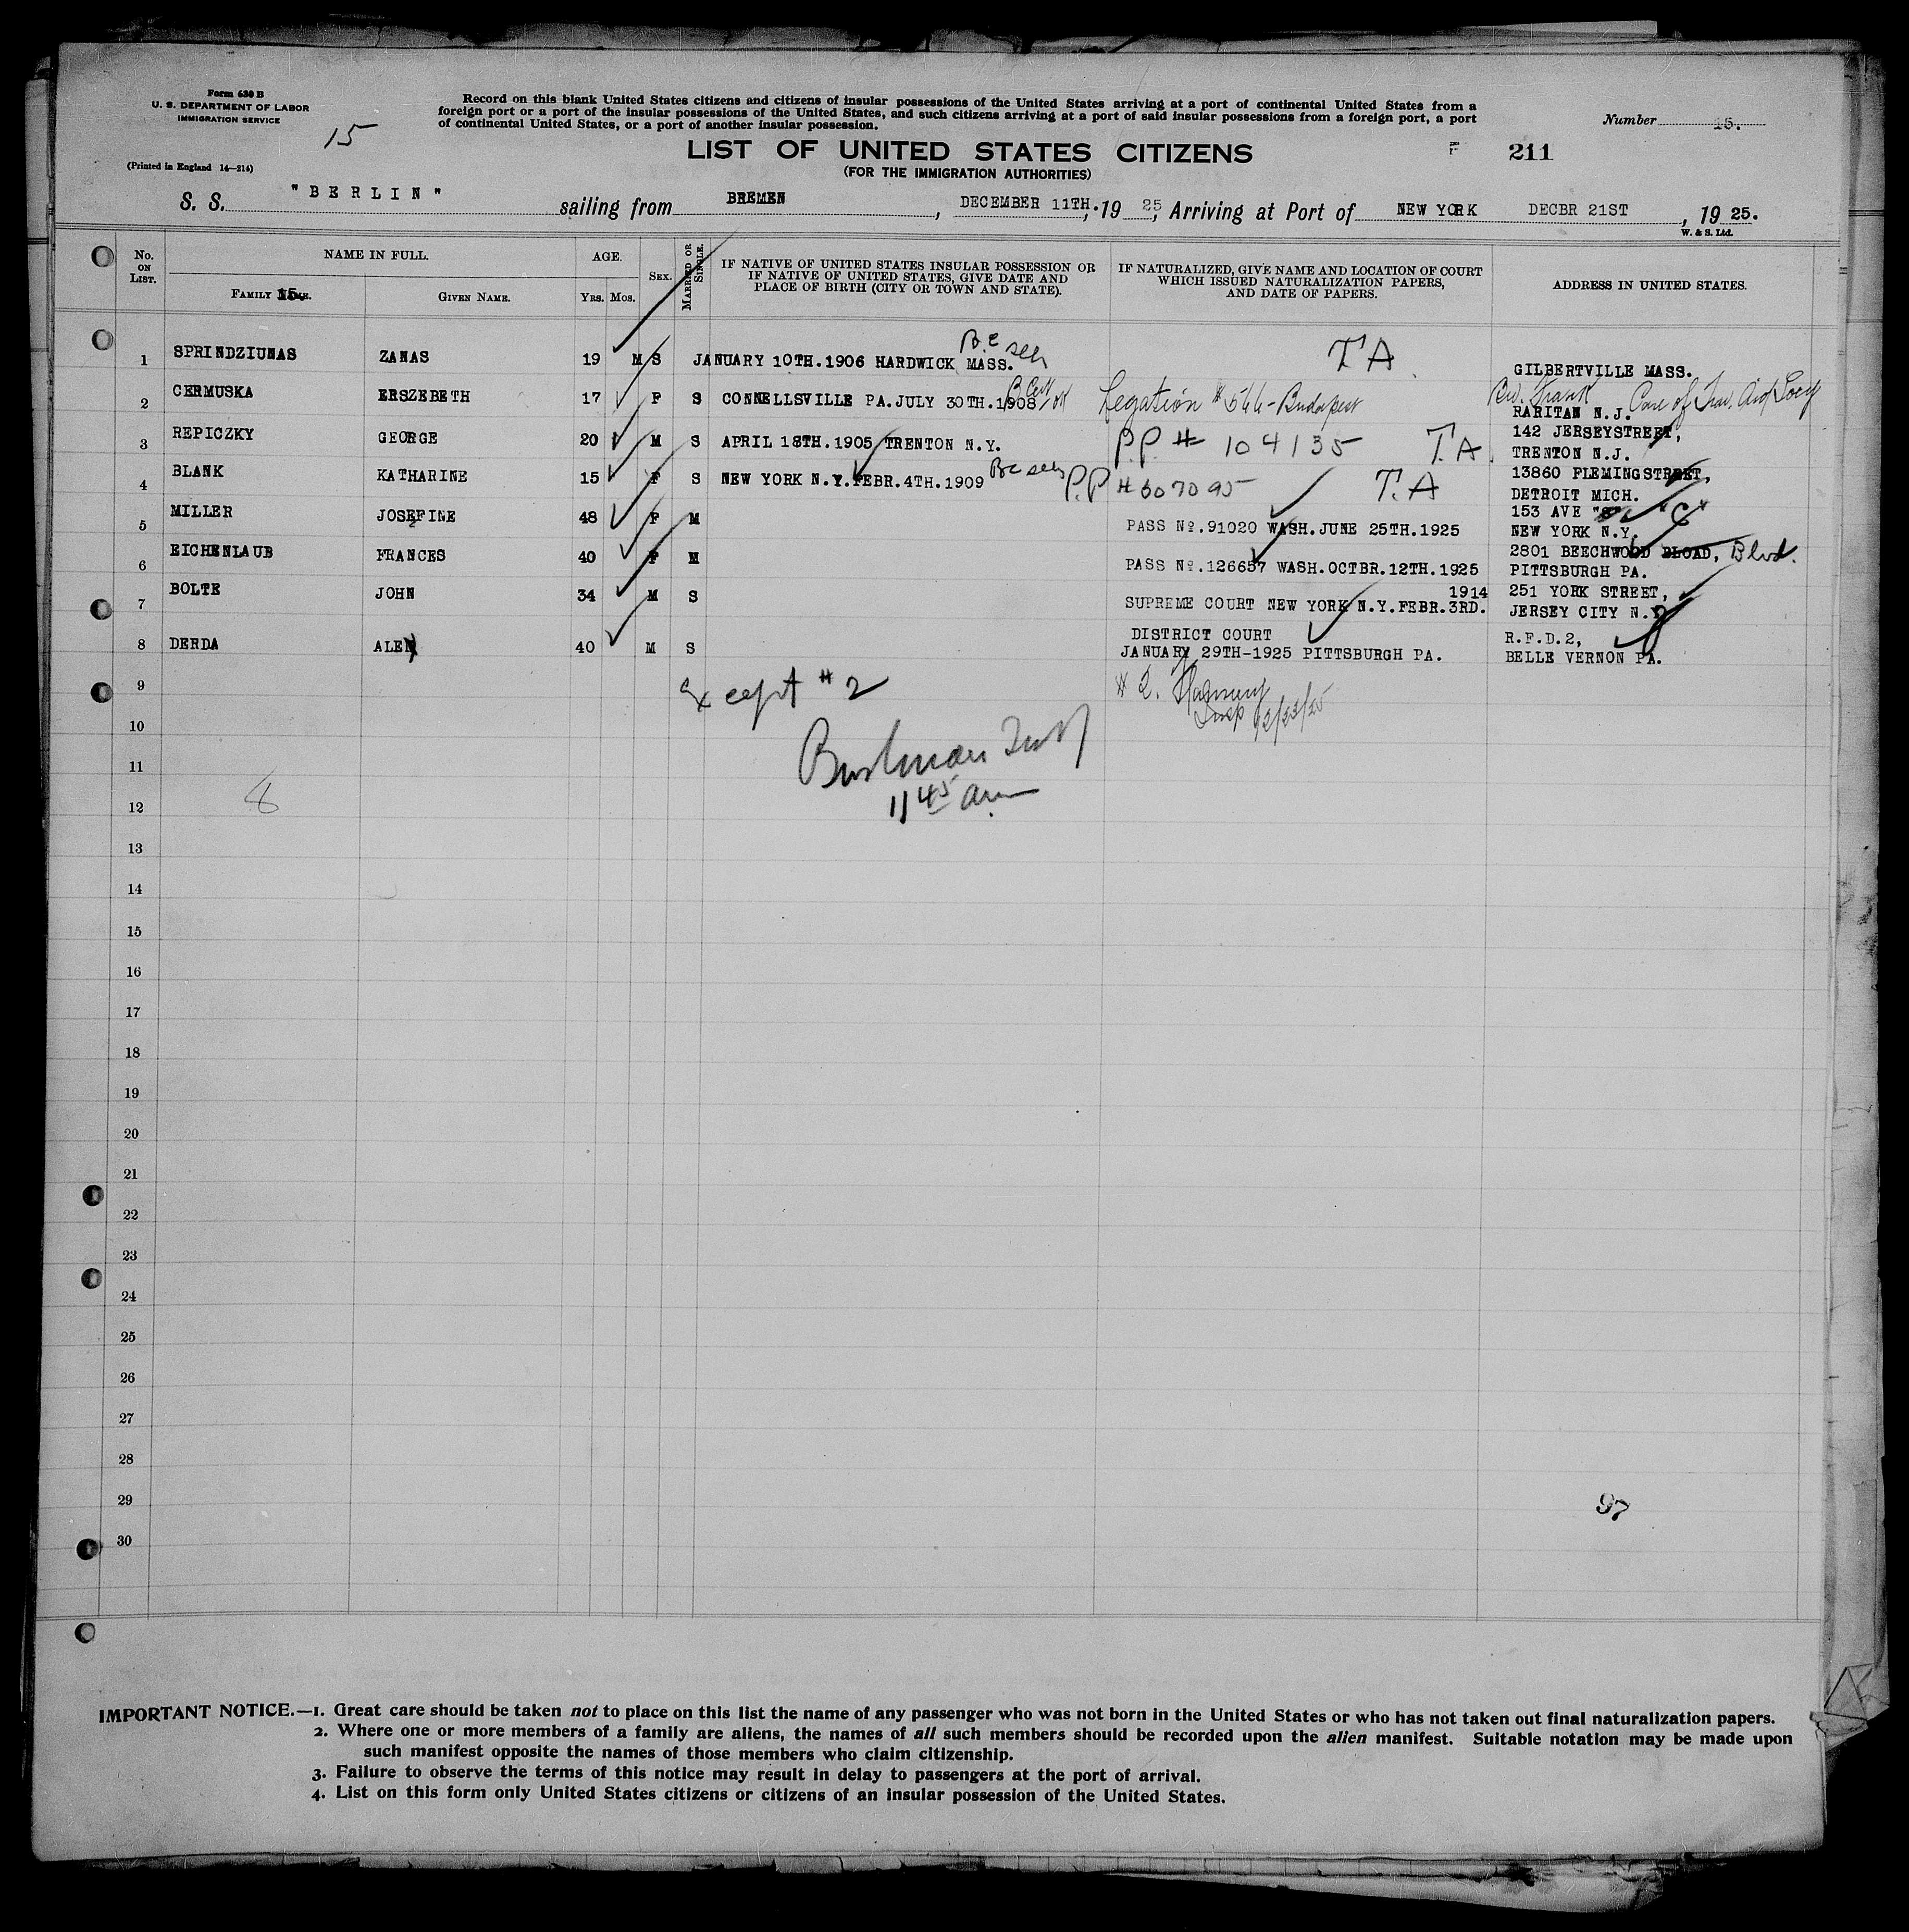 Form 630 B
U. S. DEPARTMENT OF LABOR
IMMIGRATION SERVICE
15
(Printed in England 14—214)
Record on this blank United States citizens and citizens of insular possessions of the United States arriving at a port of continental United States from a
foreign port or a port of the insular possessions of the United States, and such citizens arriving at a port of said insular possessions from a foreign port, a port
of continental United States, or a port of another insular possession.
Number 15.
LIST OF UNITED STATES CITIZENS
F 211
(FOR THE IMMIGRATION AUTHORITIES)
S. S. "BERLIN" sailing from BREMEN, DECEMBER 11TH, 19 25, Arriving at Port of NEW YORK DECBR 21ST, 19 25.
W. & S. Ltd.
No. ON LIST.
NAME IN FULL.
FAMILY NAME.
15
GIVEN NAME.
AGE.
YRS. MOS.
SEX.
MARRIED OR SINGLE.
IF NATIVE OF UNITED STATES INSULAR POSSESSION OR
IF NATIVE OF UNITED STATES, GIVE DATE AND
PLACE OF BIRTH (CITY OR TOWN AND STATE).
IF NATURALIZED, GIVE NAME AND LOCATION OF COURT
WHICH ISSUED NATURALIZATION PAPERS,
AND DATE OF PAPERS.
ADDRESS IN UNITED STATES.
1 SPRINDZIUNAS ZANAS 19 M S JANUARY 10TH.1906 HARDWICK MASS. B.C seen T A GILBERTVILLE MASS.
2 CERMUSKA ERSZEBETH 17 F S CONNELLSVILLE PA.JULY 30TH.1908 B Cert OK Legation # 566-Budapest Frank Care of Trav. Aid Socy
RARITAN N.J.
3 REPICZKY GEORGE 20 M S APRIL 18TH.1905 TRENTON N.Y. P.P. # 104135 T.A. 142 JERSEYSTREET,
TRENTON N.J.
4 BLANK KATHARINE 15 F S NEW YORK N.Y.FEBR.4TH.1909 BC seen P.P # 507095 T.A 13860 FLEMINGSTREET,
DETROIT MICH.
5 MILLER JOSEFINE 48 F M PASS No.91020 WASH.JUNE 25TH.1925 153 AVE "C"
NEW YORK N.Y.
6 EICHENLAUB FRANCES 40 F M PASS No.126657 WASH.OCTBR.12TH.1925 2801 BEECHWOOD BLOAD, Blvd.
PITTSBURGH PA.
7 BOLTE JOHN 34 M S SUPREME COURT NEW YORK N.Y.FEBR.3RD. 1914 251 YORK STREET,
JERSEY CITY N.
8 DERDA ALEX 40 M S DISTRICT COURT
JANUARY 29TH-1925 PITTSBURGH PA.
R.F.D.2,
BELLE VERNON PA.
9 Except # 2 # 2. Insp 12/23/25
10
11
8
12 11 45 am
13
14
15
16
17
18
19
20
21
22
23
24
25
26
27
28
29
97
30
IMPORTANT NOTICE.—1. Great care should be taken not to place on this list the name of any passenger who was not born in the United States or who has not taken out final naturalization papers.
2. Where one or more members of a family are aliens, the names of all such members should be recorded upon the alien manifest. Suitable notation may be made upon
such manifest opposite the names of those members who claim citizenship.
3. Failure to observe the terms of this notice may result in delay to passengers at the port of arrival.
4. List on this form only United States citizens or citizens of an insular possession of the United States.